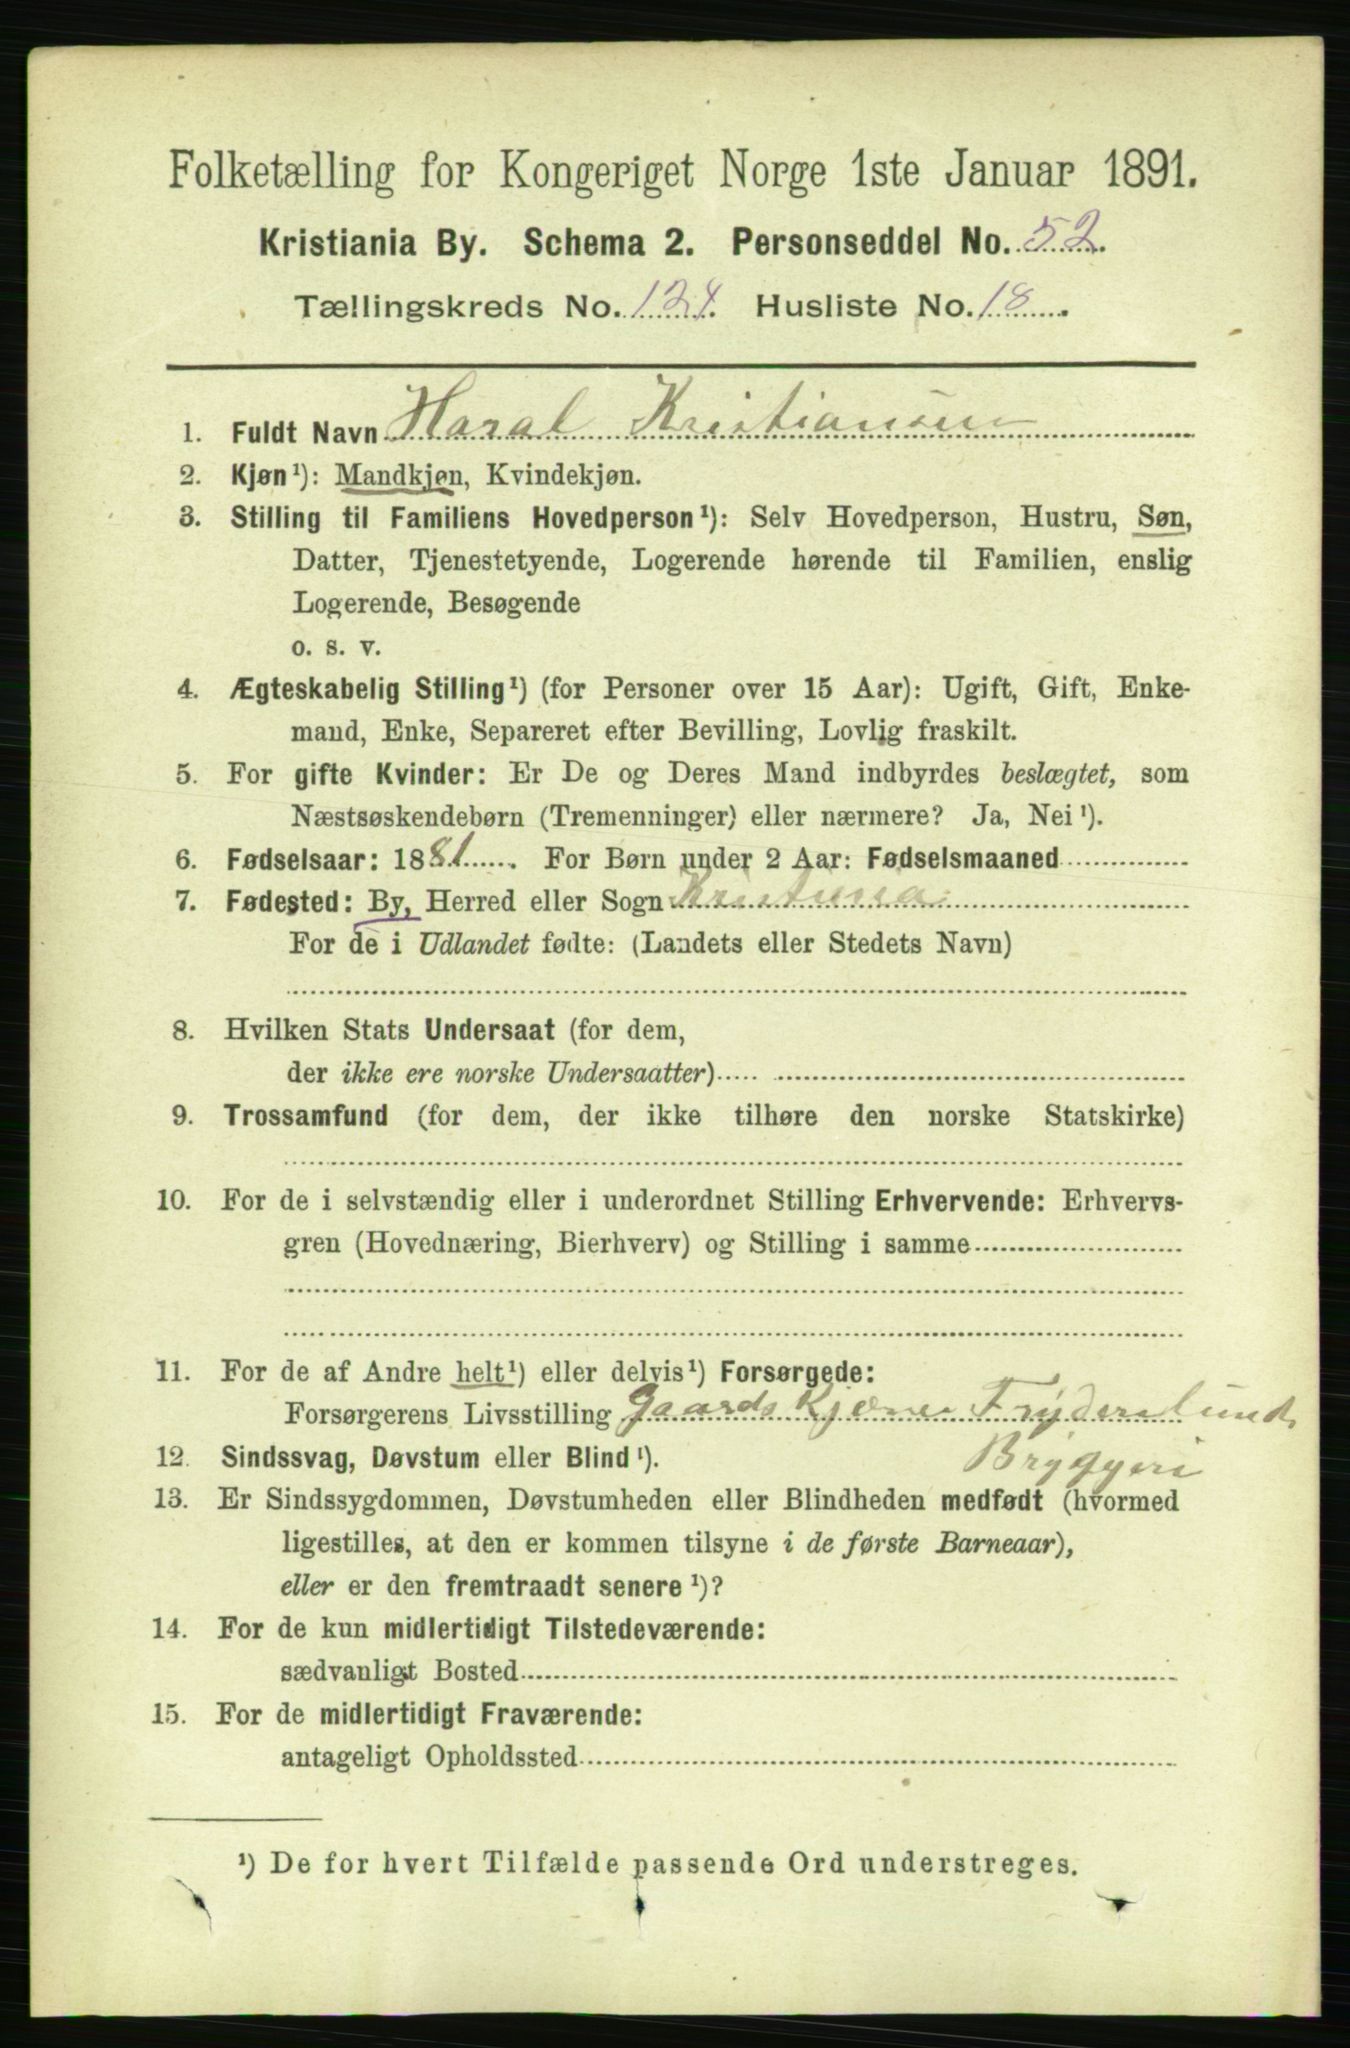 Folketælling for Kongeriget Norge 1ste Januar 1891.
Kristiania By. Schema 2. Personseddel No. 52.
Tællingskreds No. 124. Husliste No. 18.
1. Fuldt Navn Haral Kristiansen
2. Kjøn¹): Mandkjøn, Kvindekjøn.
3. Stilling til Familiens Hovedperson¹): Selv Hovedperson, Hustru, Søn,
Datter, Tjenestetyende, Logerende hørende til Familien, enslig
Logerende, Besøgende
o. s. v.
4. Ægteskabelig Stilling¹) (for Personer over 15 Aar): Ugift, Gift, Enke-
mand, Enke, Separeret efter Bevilling, Lovlig fraskilt.
5. For gifte Kvinder: Er De og Deres Mand indbyrdes beslægtet, som
Næstsøskendebørn (Tremenninger) eller nærmere? Ja, Nei¹).
6. Fødselsaar: 1881. For Børn under 2 Aar: Fødselsmaaned
7. Fødested: By, Herred eller Sogn Kristiania
For de i Udlandet fødte: (Landets eller Stedets Navn)
8. Hvilken Stats Undersaat (for dem,
der ikke ere norske Undersaatter)
9. Trossamfund (for dem, der ikke tilhøre den norske Statskirke)
10. For de i selvstændig eller i underordnet Stilling Erhvervende: Erhvervs-
gren (Hovednæring, Bierhverv) og Stilling i samme
11. For de af Andre helt¹) eller delvis¹) Forsørgede:
Forsørgerens Livsstilling Gaards Kjører Frydenlund
Bryggeri
12. Sindssvag, Døvstum eller Blind¹).
13. Er Sindssygdommen, Døvstumheden eller Blindheden medfødt (hvormed
ligestilles, at den er kommen tilsyne i de første Barneaar),
eller er den fremtraadt senere¹)?
14. For de kun midlertidigt Tilstedeværende:
sædvanligt Bosted
15. For de midlertidigt Fraværende:
antageligt Opholdssted
¹) De for hvert Tilfælde passende Ord understreges.